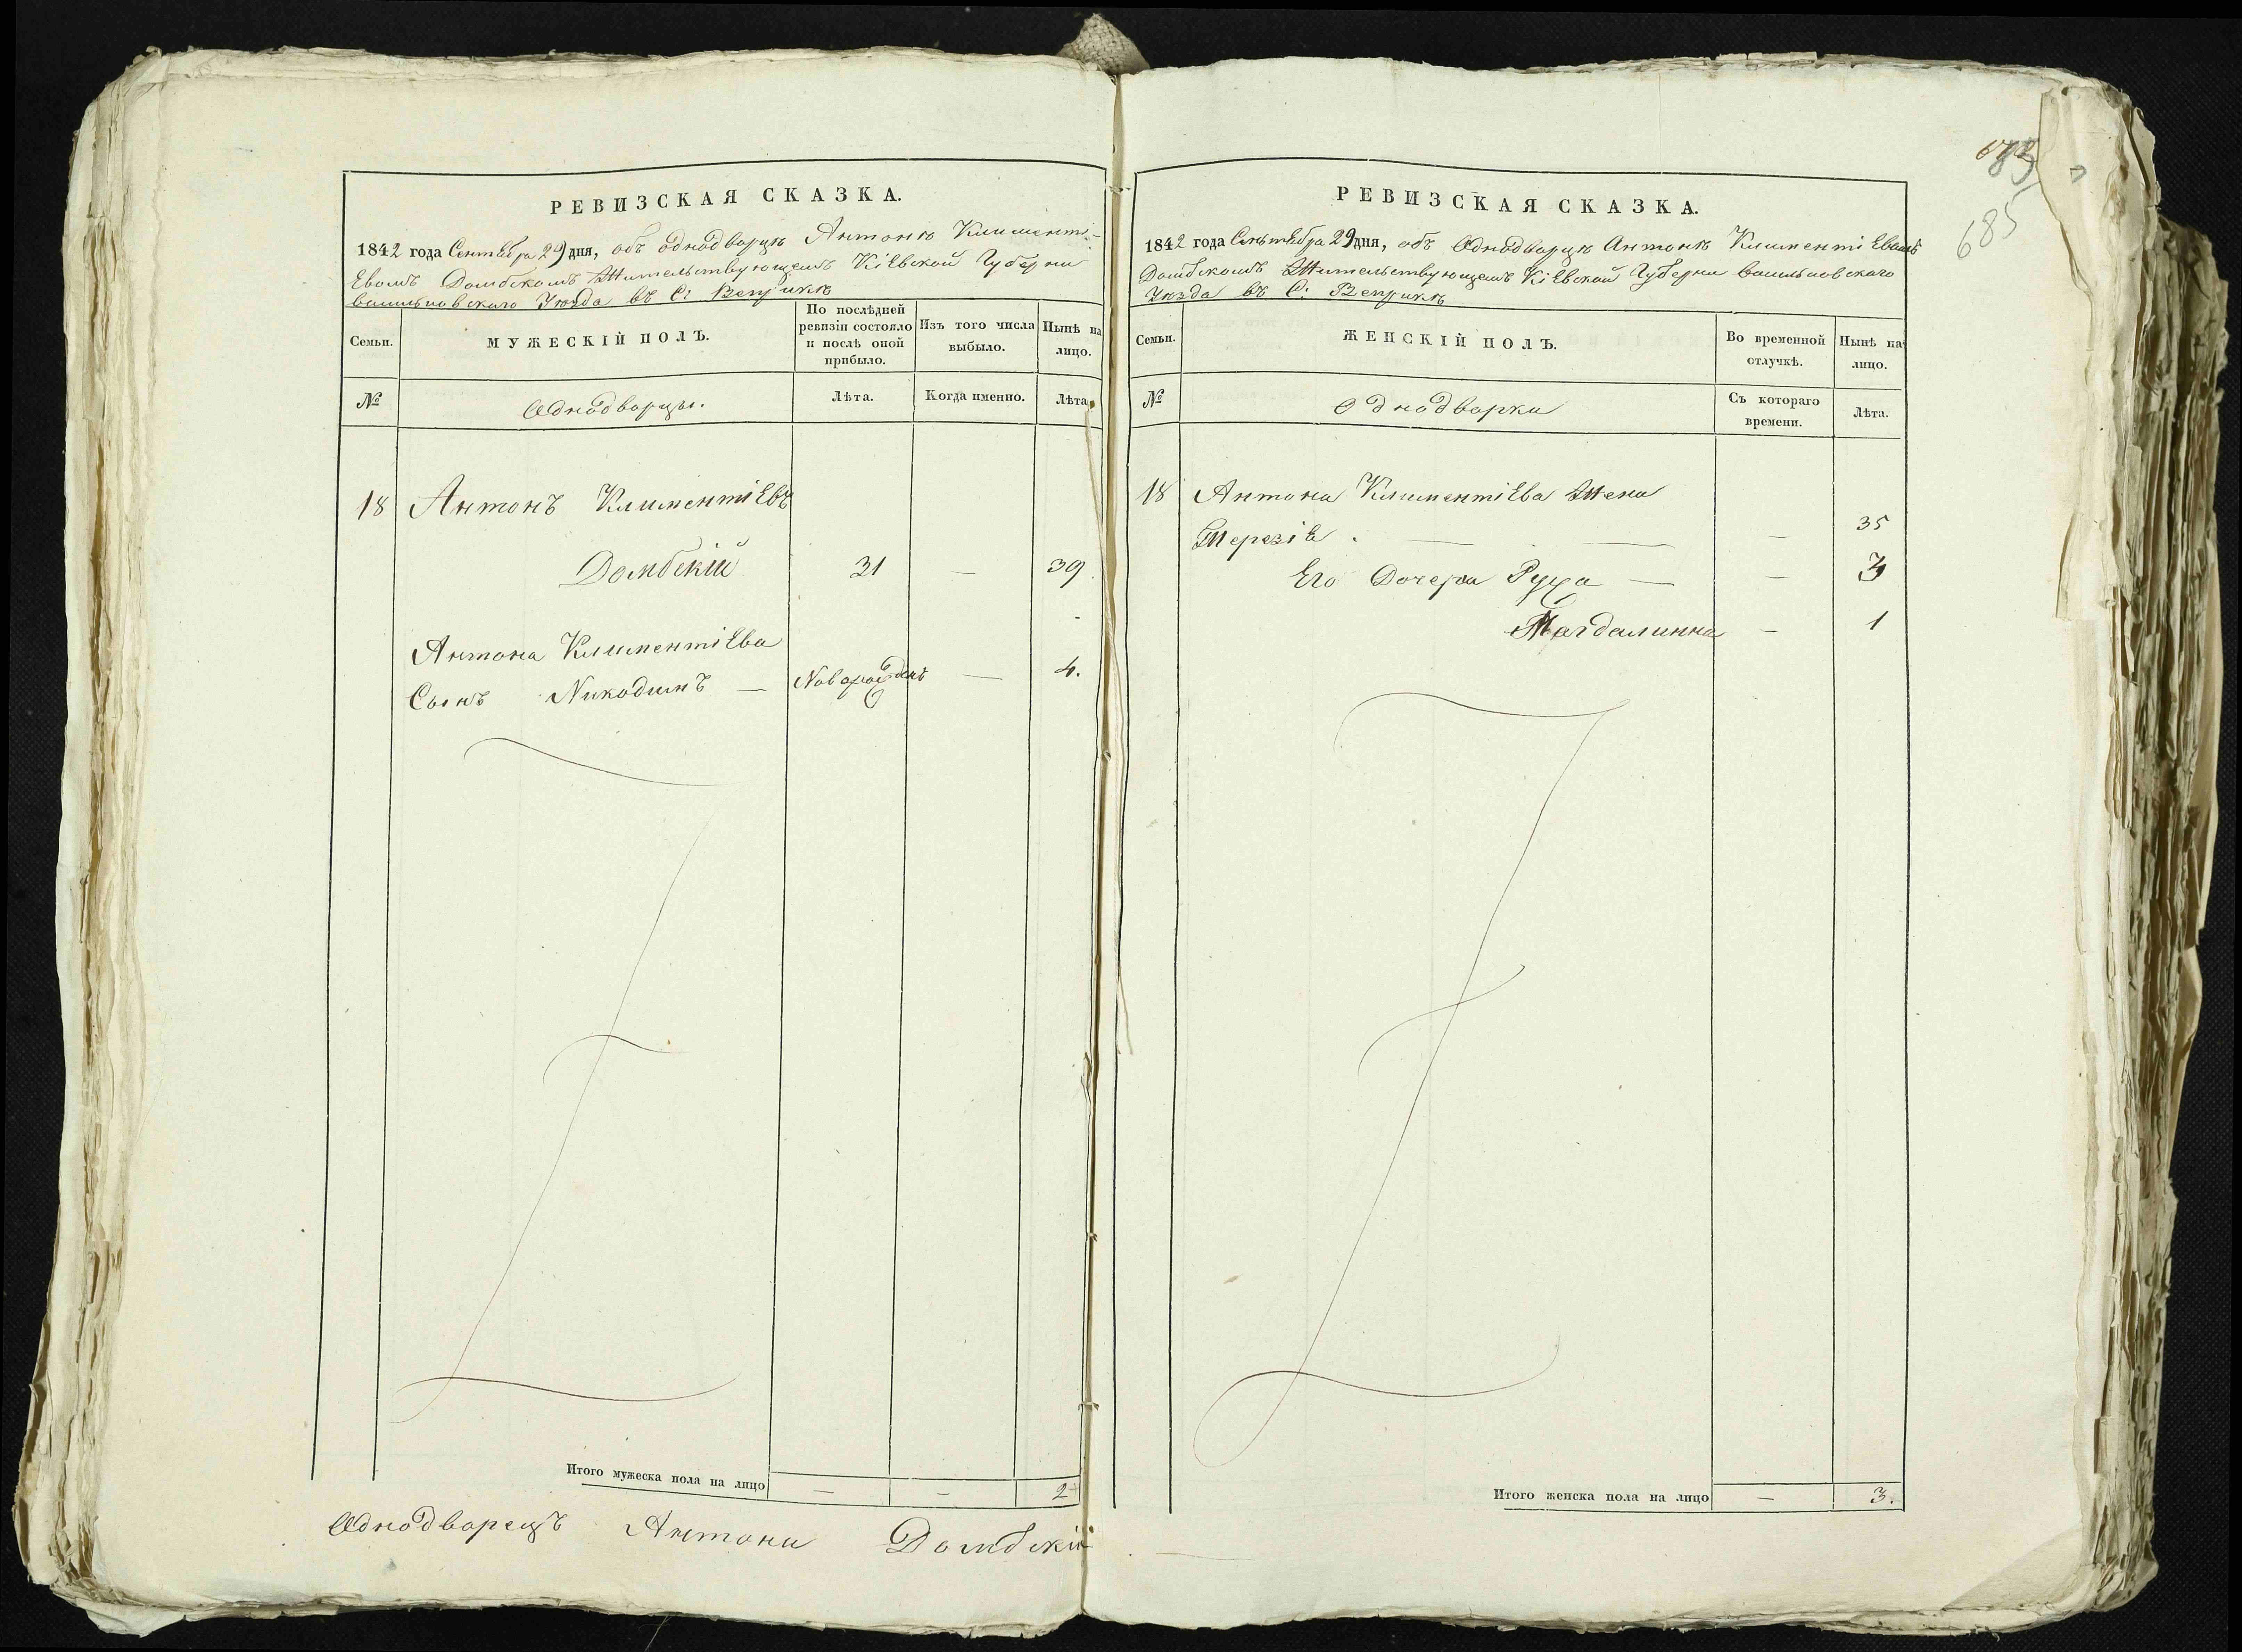 РЕВИЗСКАЯ СКАЗКА.
1842 года Сентебра 29 дня, объ однодворцѣ Антонѣ Климентi-
Евомъ Домбскомъ Жительствующемъ КiЕвской Губерни
васильковского Уѣзда въ С: Веприкѣ
Семьи.
МУЖЕСКІЙ ПОЛЪ.
По послѣдней ревизіи состояло и послѣ оной прибыло.
Изъ того числа выбыло.
Нынѣ на лицо.
№
Однодворцы.
Лѣта.
Когда именно.
Лѣта
18 Антонъ КлиментіЕвъ
Домбскій 31 — 39.
Антона КлиментіЕва
Сынъ Никодимъ — Новорожденъ — 4.
Итого мужеска пола на лицо — — 2
Однодворецъ Антони Домбскій
685
РЕВИЗСКАЯ СКАЗКА.
1842 года Сентебра 29 дня, объ Однодворцѣ Антонѣ КлиментіЕвомъ
Домбскомъ Жительствующемъ КіЕвской Губерни васильковского
Уѣзда въ С: Веприкѣ
Семьи.
ЖЕНСКІЙ ПОЛЪ.
Во временной отлучкѣ.
Нынѣ на лицо.
№
Однодворки
Съ котораго времени.
Лѣта.
18 Антона КлиментіЕва Жена
Терезіе . — — — 35
Его Дочери Руха — — 3
Магдалинна — 1
Итого женска пола на лицо — 3.